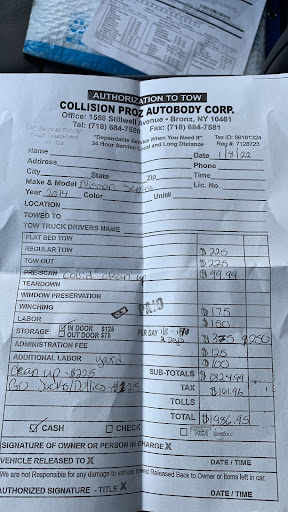 AUTHORIZATION TO TOW
COLLISION PROZ AUTOBODY CORP.
Office: 1558 Stillwell Avenue - Bronx, NY 10461
Tel: (718) 684-7580 Fax: (718) 684-7581
"Dependable Service When You Need It" Tax ID: 86181324
24 Hour Service Local and Long Distance Reg #: 7128723
Name Date 1/8/22
Address Phone
City State Zip Time
Make & Model Nissan Sentra Lic. No.
Year 2014 Color Unit#
LOCATION
TOWED TO
TOW TRUCK DRIVERS NAME
FLAT BED TOW
REGULAR TOW $225
TOW OUT $225
PRE-SCAN Covid clean up $99.99
TEARDOWN
WINDOW PRESERVATION
WINCHING PAID $175
LABOR $150
STORAGE: IN DOOR $125 PER DAY 1/8 - 1/10
OUT DOOR $75 2 Days $250
ADMINISTRATION FEE $125
ADDITIONAL LABOR yard $100
Clean up - $225 SUB-TOTALS
Go Jacks/Dollies - $225 TAX
TOLLS
CASH CHECK TOTAL
SIGNATURE OF OWNER OR PERSON IN CHARGE X
VEHICLE RELEASED TO X DATE / TIME
We are not Responsible for any damage to vehicle towed Released Back to Owner or Items left in car.
AUTHORIZED SIGNATURE - TITLE X DATE / TIME